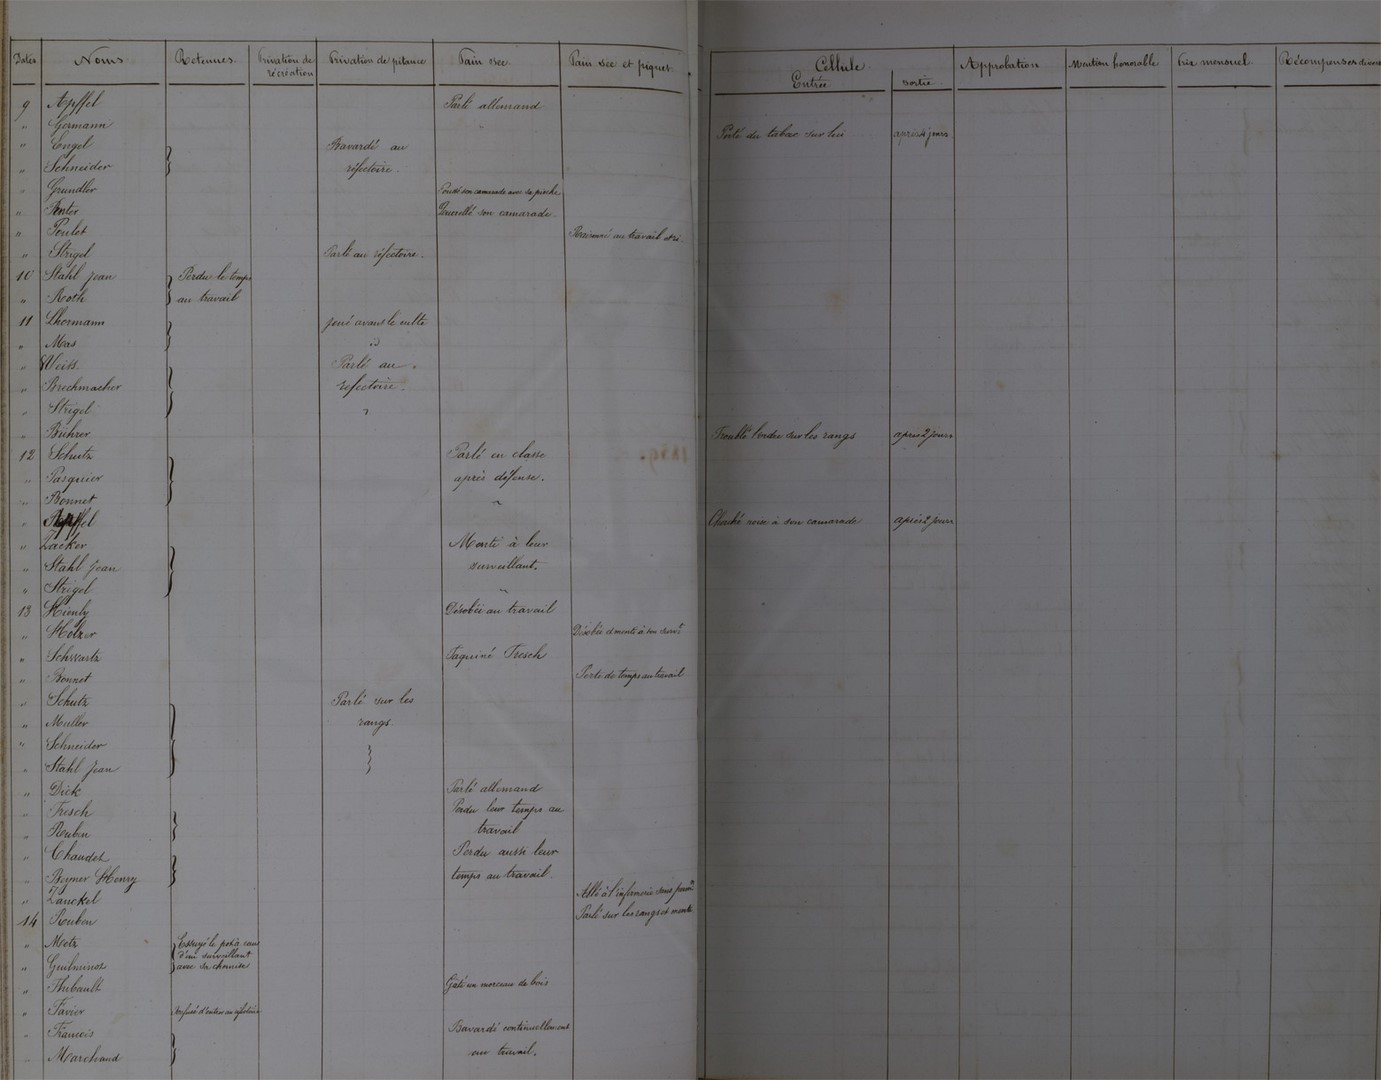 Dates Noms Retenues Privation de récréation Privation de pitance Pain sec Pain sec et piquet Cellule Entrée sortie Approbation Mention honorable Prix mensuel Récompenses
9 Apffel Parlé allemand
" Germann Porté du tabac sur lui après 4 jours
" Engel Bavardé au
" Schneider réfectoire.
" Grundler son camarade avec sa pioche
" son camarade.
" Poulet au travail et
" Strigel Parlé au réfectoire.
10 Stahl Jean Perdu le temps
" Roth au travail
11 Lhermann avant le culte
" Mas id
" Weiss Parlé au
" Brechmacher réfectoire.
" Strigel "
" Bührer Troublé l'ordre sur les rangs après 2 jours
12 Schutz Parlé en classe
" Pasquier après défense.
" Bonnet "
" Apffel Cherché noise à son camarade après 2 jours
" Zacker à leur
" Stahl Jean surveillant.
" Strigel "
13 Hienly Désobéi au travail
" Holzer Désobéi et menti à son
" Schwartz Taquiné Fresch
" Bonnet Perte de temps au travail
" Schutz Parlé sur les
" Muller rangs.
" Schneider
" Stahl Jean
" Dick Parlé allemand
" Fresch Perdu leur temps au
" Reuben travail
" Chaudet Perdu aussi leur
" Beyner Henry temps au travail.
" Zanckel Allé à l'infirmerie sans
14 Reuben Parlé sur les rangs et
" Metz Essuyé le
" d'un surveillant
avec sa chemise
" Thibault Gâté un morceau de bois
" Favier Refusé d'entrer au
" Francois Bavardé continuellement
" Marchand au travail.